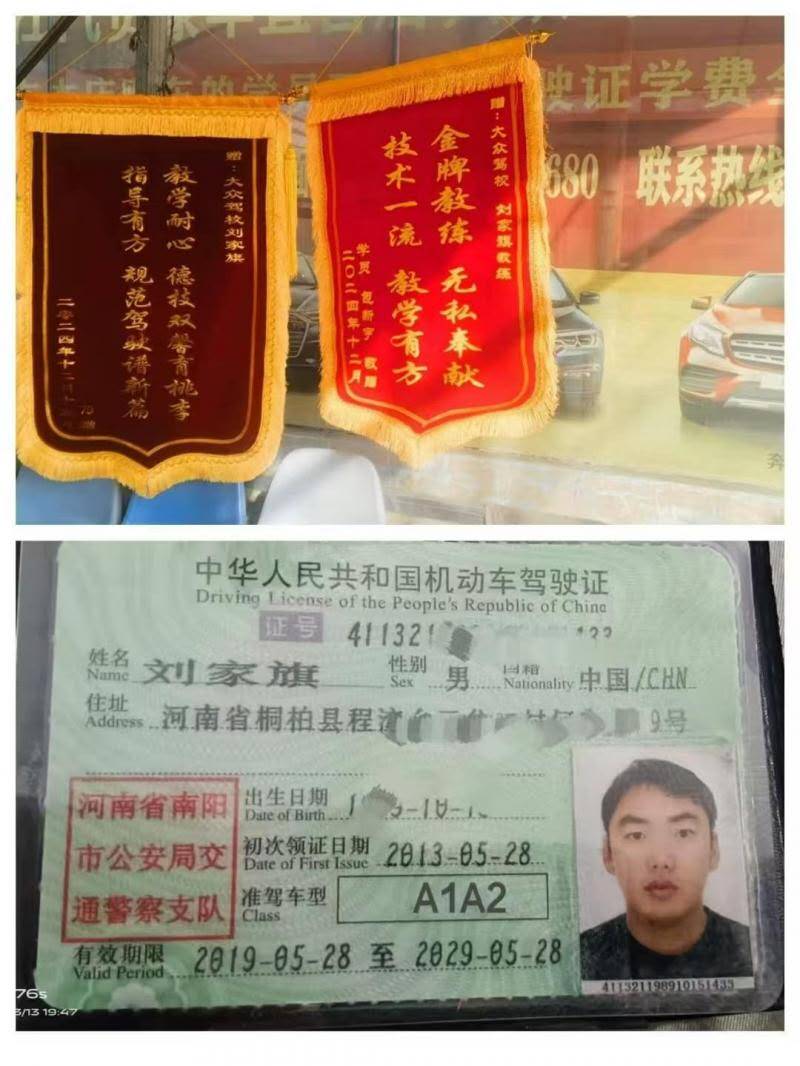 驶证学费全
680 联系热线
赠：大众驾校刘家旗
教学耐心 德技双馨育桃李
指导有方 规范驾驶谱新篇
赠：大众驾校 刘家旗教练
金牌教练 无私奉献
技术一流 教学有方
学员 包新宇 敬赠
二〇二四年十二月
奔
中华人民共和国机动车驾驶证
Driving License of the People's Republic of China
证号 411321
姓名 刘家旗 性别 男 国籍 中国/CHN
Name Sex Nationality
住址 河南省桐柏县程湾 9号
Address
河南省南阳
市公安局交
通警察支队
出生日期
Date of Birth
初次领证日期 2013-05-28
Date of First Issue
准驾车型 A1A2
Class
有效期限 2019-05-28 至 2029-05-28
Valid Period
411321198910151433
76s
3/13 19:47